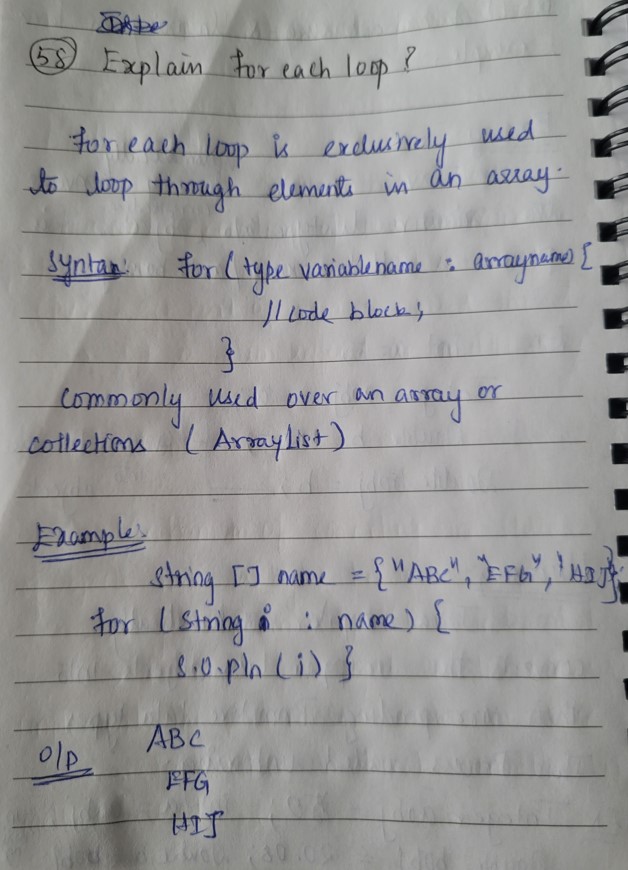 58 Explain for each loop?
for each loop is exclusively used
to loop through elements in an array.
Syntax: for (type variablename : arrayname) {
//code block;
}
commonly used over an array or
collections (ArrayList)
Example:
String [] name = {"ABC", "EFG", "HIJ"};
for (String i : name) {
S.O.pln (i) }
O/P ABC
EFG
HIJ